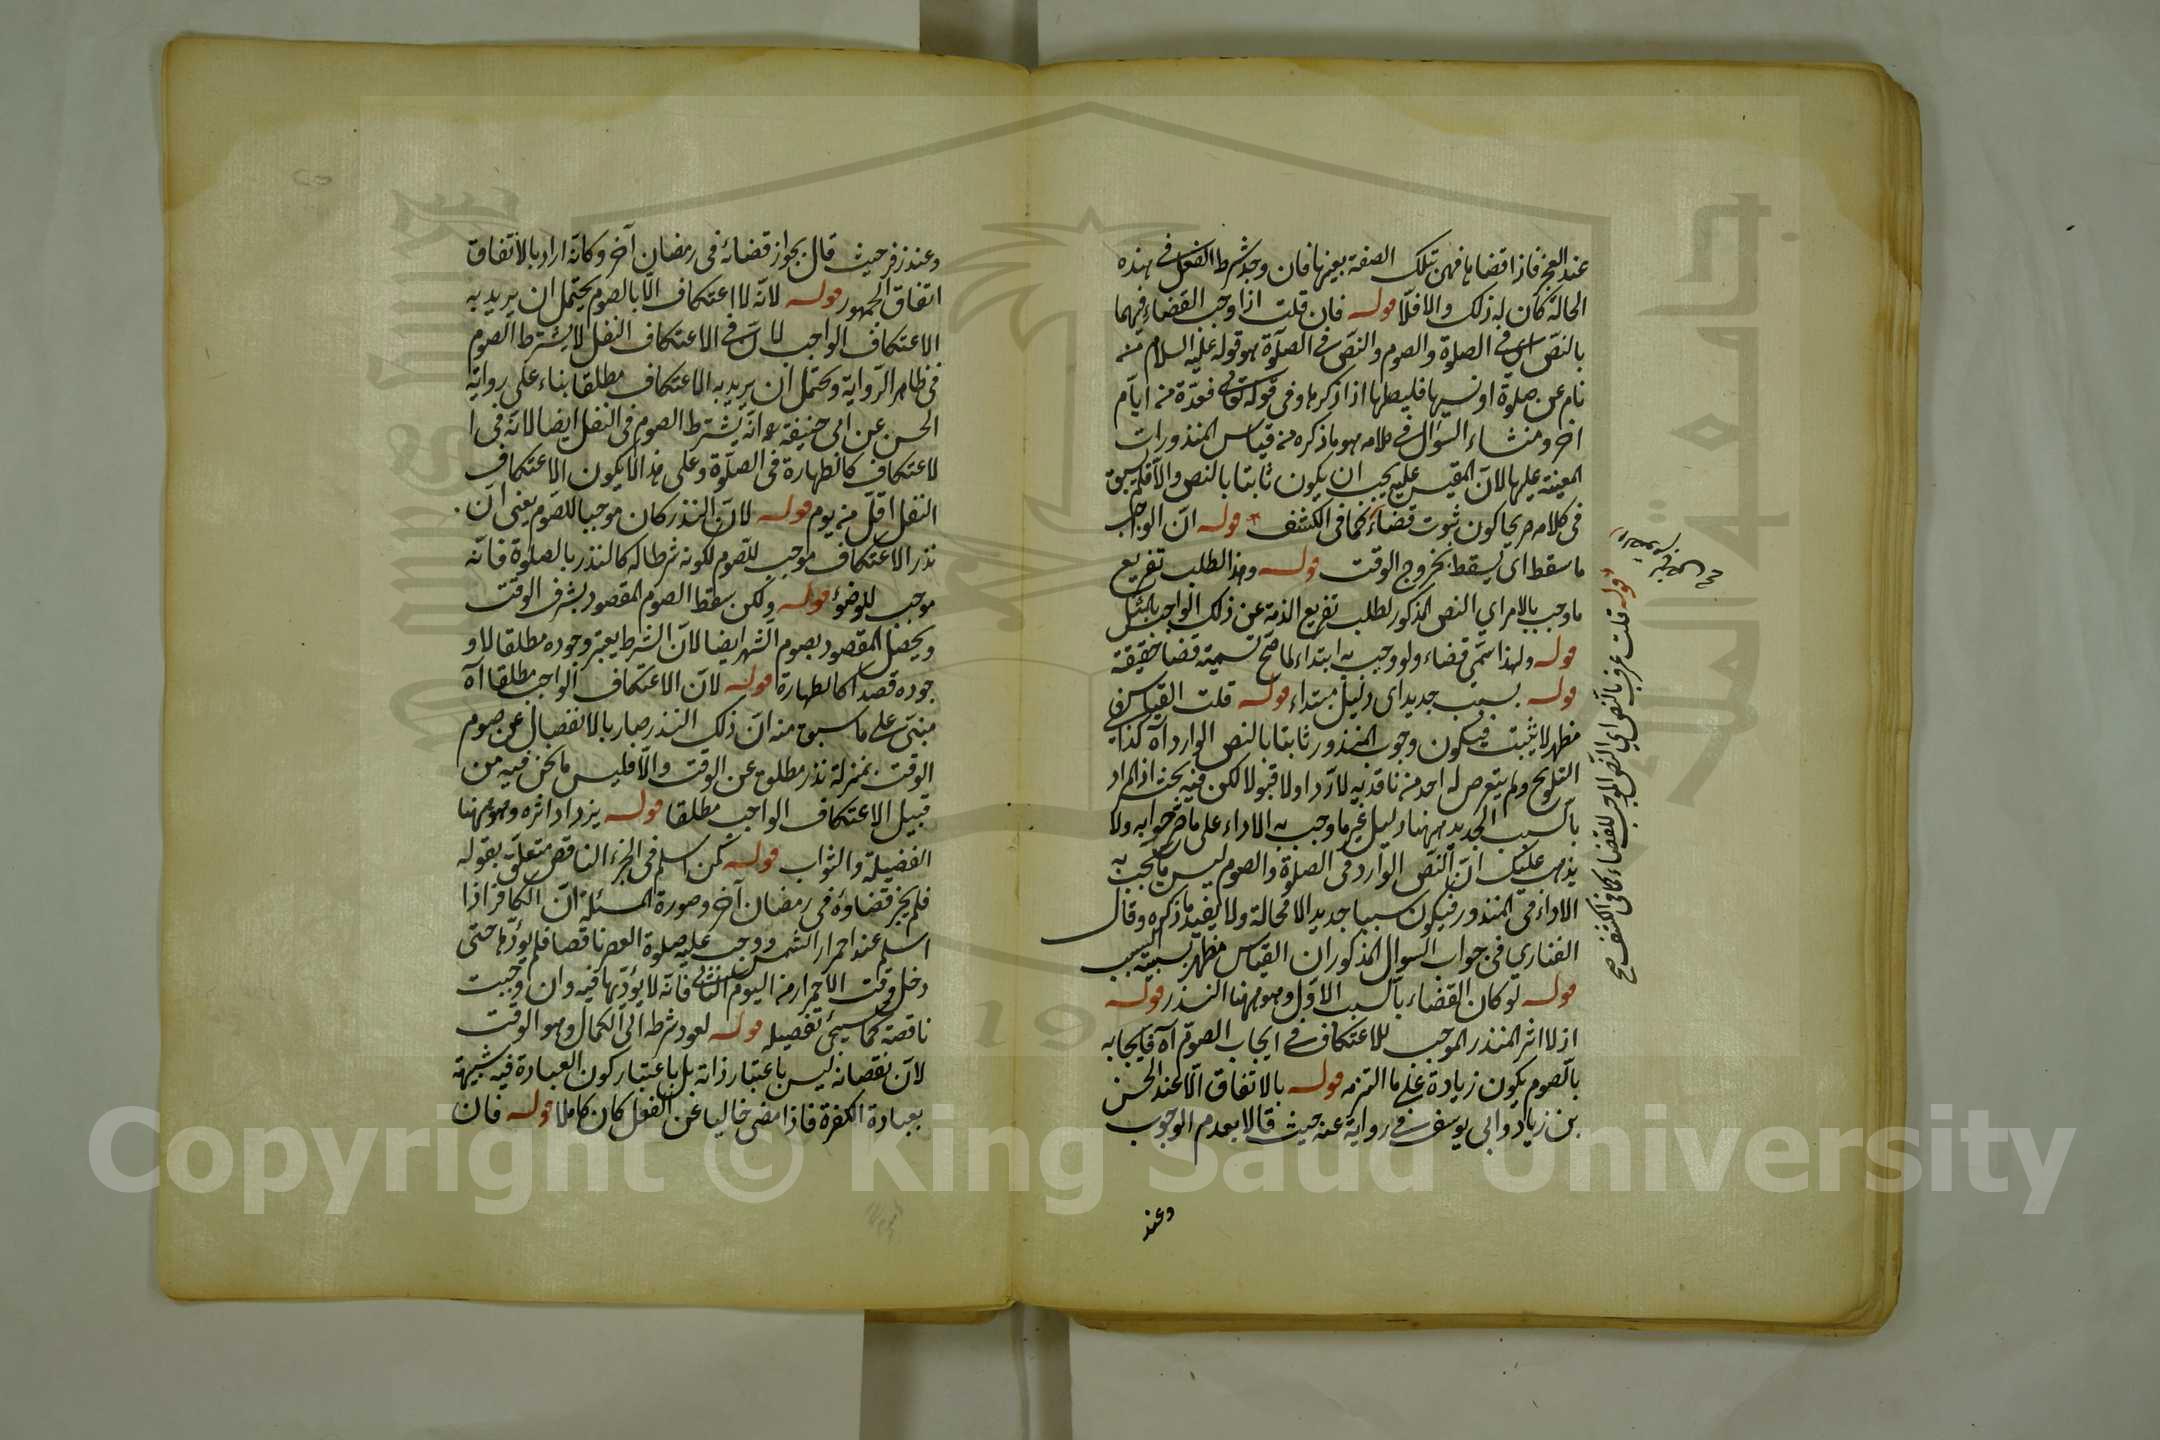 عند العجز فاذا قضاها فهى تلك الصفة بعينها فان وجد شرط الفعل فى هذه
الحالة كان له ذلك والا فلا قوله فان قلت اذا وجب القضاء فيهما
بالنص اى فى الصلوة والصوم والنص فى الصلوة هو قوله عليه السلام من
نام عن صلوة او نسيها فليصلها اذا ذكرها وفى قوله تعالى فعدة من ايام
اخر ومنشاء السؤال فى كلامه هو ما ذكره من قياس المنذورات
المعينة عليها لان المقيس عليه يجب ان يكون ثابتا بالنص والا فلم يسبق
فى كلامه صريحا كون ثبوت قضاء كما فى الكشف قوله ان الواجب
ما سقط اى لم يسقط بخروج الوقت قوله وهذا الطلب تفريغ
ما وجب بالامر اي النص المذكور لطلب تفريغ الذمة عن ذلك الواجب بالمثل
قوله ولهذا سمى قضاء ولو وجب به ابتداء لما صح تسميته قضا حقيقة
قوله بسبب جديد اى دليل مبتداء قوله قلت القياس
مظهر لا يثبت فيكون وجوب المنذور ثابتا بالنص الوارد آه كذا فى
التلويح ولم يتعرض له احد من ناقديه لا ردا ولا قبولا لكن فيه بحث اذ المراد
بالسبب الجديد ههنا دليل غير ما وجب به الاداء على ما صرحوا به ولا
يذهب عليك ان النص الوارد فى الصلوة والصوم ليس ما يجب به
الاداء فى المنذور فيكون سببا جديدا لا محالة ولا يفيد ما ذكره وقال
الفنارى فى جواب السؤال المذكور ان القياس مظهر بسببية السبب
قوله لو كان القضاء بالسبب الاول وهو ههنا النذر قوله
اذ لا اثر للنذر الموجب للاعتكاف فى ايجاب الصوم آه فايجابه
بالصوم يكون زيادة على ما التزمه قوله بالاتفاق الا عند الحسن
بن زياد وابى يوسف فى رواية عنه حيث قالا بعدم الوجوب
وعند
قوله قلت عرف بالنص اي النص الموجب للقضاء كما فى الكشف صح
وعند زفر حيث قال بجواز قضائه فى رمضان آخر وكانه اراد بالاتفاق
اتفاق الجمهور قوله لانه لا اعتكاف الا بالصوم يحتمل ان يريد به
الاعتكاف الواجب لان فى الاعتكاف النفل لا يشترط الصوم
فى ظاهر الرواية ويحتمل ان يريد به الاعتكاف مطلقا بناء على رواية
الحسن عن ابى حنيفة انه يشترط الصوم فى النفل ايضا لانه فى ا
لاعتكاف كالطهارة فى الصلوة وعلى هذا لا يكون الاعتكاف
النفل اقل من يوم قوله لان النذر كان موجبا للصوم يعنى ان
نذر الاعتكاف موجب للصوم لكونه شرطا له كالنذر بالصلوة فانه
موجب للوضوء قوله ولكن سقط الصوم المقصود بشرف الوقت
ويحصل المقصود بصوم الشهر ايضا لان الشرط يعتبر وجوده مطلقا لا و
جوده قصدا كالطهارة قوله لان الاعتكاف الواجب مطلقا آه
مبنى على ما سبق منه ان ذلك النذر صار بالانفصال عن صوم
الوقت بمنزلة نذر مطلق عن الوقت والا فليس ما نحن فيه من
قبيل الاعتكاف الواجب مطلقا قوله يزداد اثره وهو ههنا
الفضيلة والثواب قوله كمن اسلم فى الجزء الناقص متعلق بقوله
فلم يجز قضاؤه فى رمضان آخر وصورة المسئلة ان الكافر اذا
اسلم عند احمرار الشمس ووجب عليه صلوة العصر ناقصا فلم يؤدها حتى
دخل وقت الاحمرار من اليوم الثانى فانه لا يؤديها فيه وان وجبت
ناقصة كما سيجئ تفصيله قوله لعود شرطه الى الكمال وهو الوقت
لان نقصانه ليس باعتبار ذاته بل باعتبار كون العبادة فيه شبيهة
بعبادة الكفرة فاذا مضى خاليا عن الفعل كان كاملا قوله فان
Copyright © King Saud University